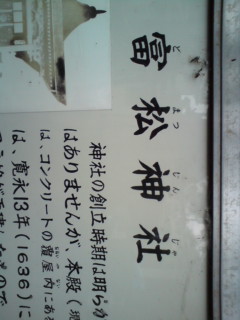 富松神社
とまつじんじゃ
神社の創立時期は明らか
はありませんが、本殿(
は、コンクリートの覆屋内にある
は、寛永13年(1636)に